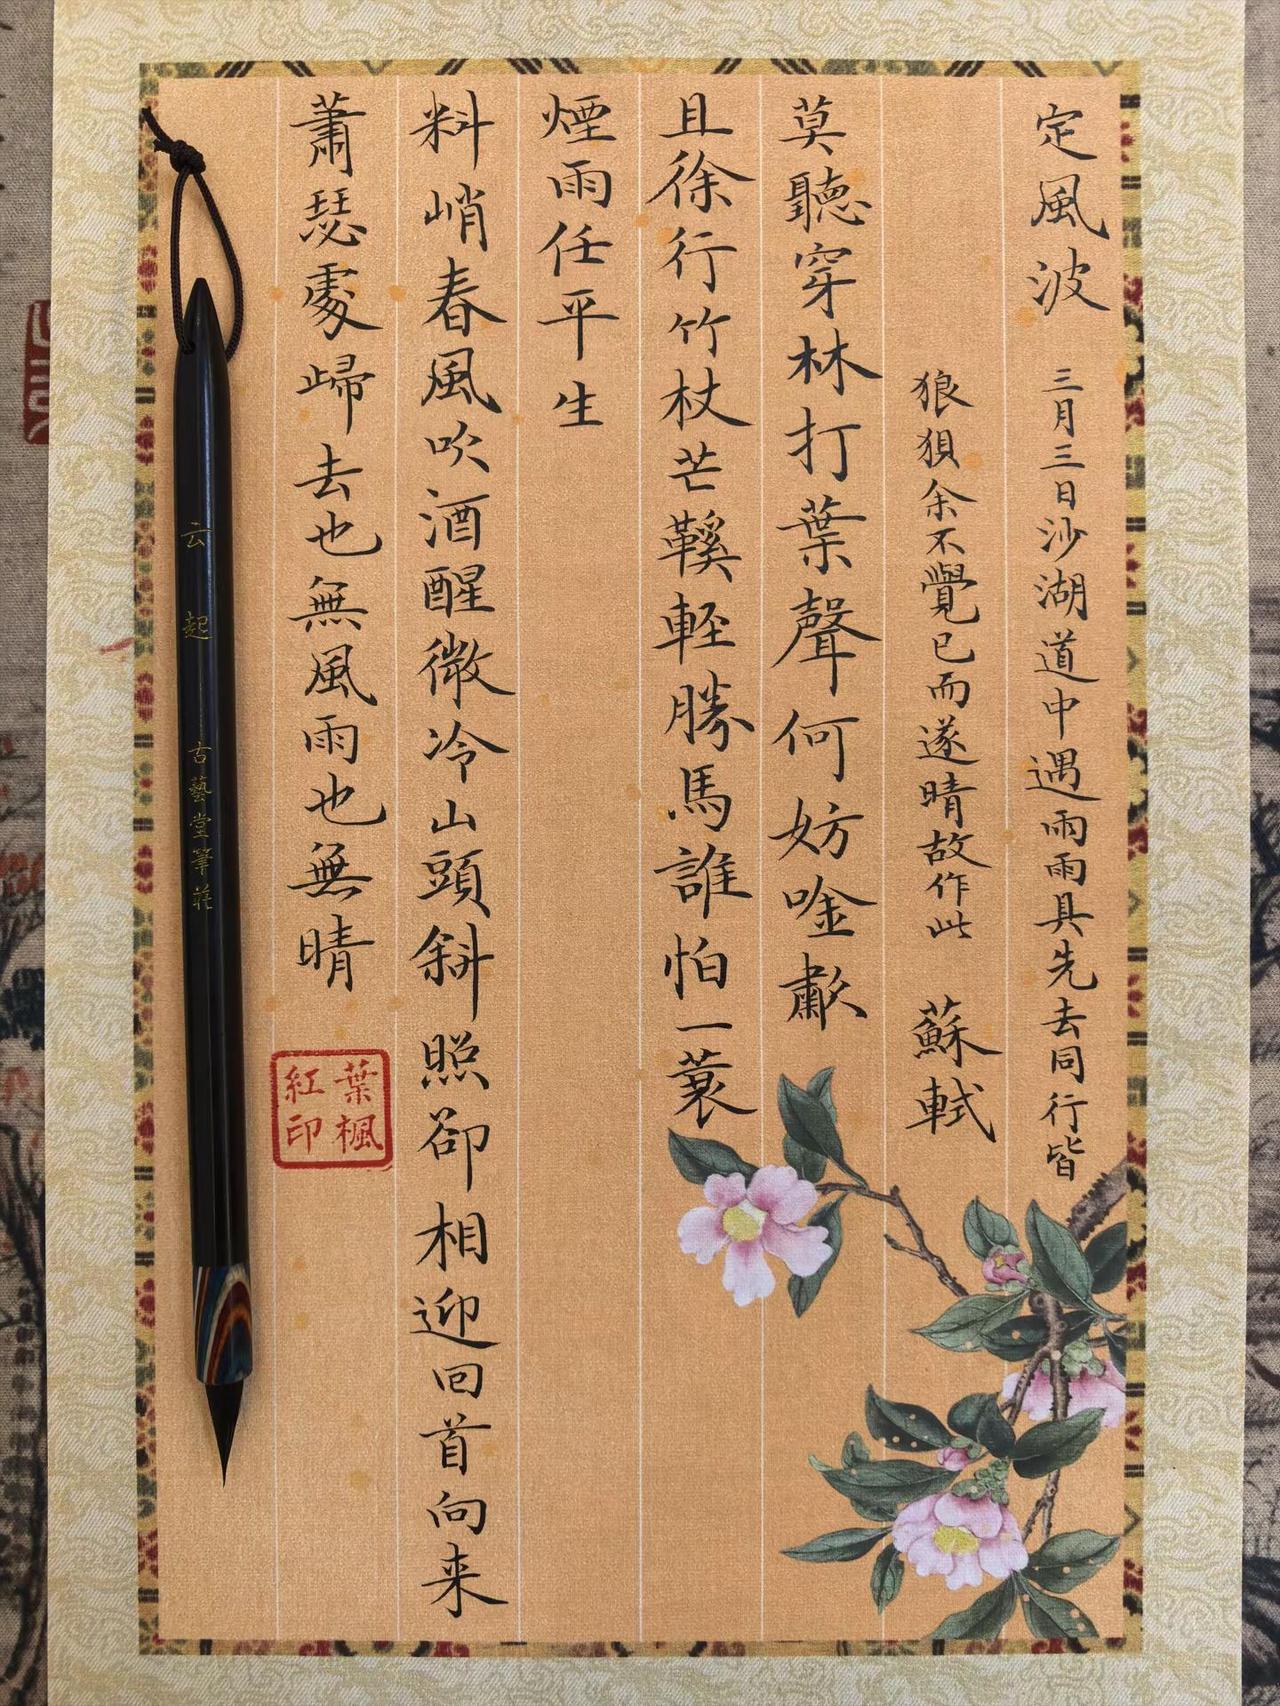 定風波 三月三日沙湖道中遇雨雨具先去同行皆
狼狽余不覺已而遂晴故作此 蘇軾
莫聽穿林打葉聲何妨唫歗
且徐行竹杖芒鞵輕勝馬誰怕一蓑
煙雨任平生
料峭春風吹酒醒微冷山頭斜照卻相迎回首向来
蕭瑟處歸去也無風雨也無晴
葉楓
紅印
云起 古藝堂筆莊